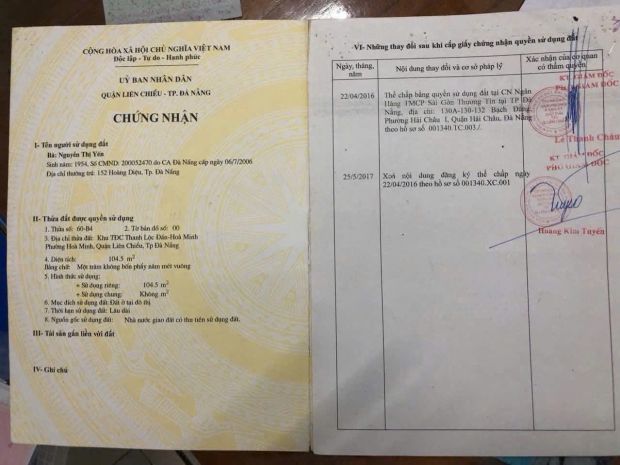 CỘNG HÒA XÃ HỘI CHỦ NGHĨA VIỆT NAM
Độc lập - Tự do - Hạnh phúc
UỶ BAN NHÂN DÂN
QUẬN LIÊN CHIỂU - TP. ĐÀ NẴNG
CHỨNG NHẬN
I- Tên người sử dụng đất
Bà: Nguyễn Thị Yến
Sinh năm: 1954, Số CMND: 200052470 do CA Đà Nẵng cấp ngày 06/7/2006
Địa chỉ thường trú: 152 Hoàng Diệu, Tp. Đà Nẵng
II- Thửa đất được quyền sử dụng
1. Thửa số: 60-B4 2. Tờ bản đồ số: 00
3. Địa chỉ thửa đất: Khu TĐC Thanh Lộc Đán-Hoà Minh
Phường Hoà Minh, Quận Liên Chiểu, Tp Đà Nẵng
4. Diện tích: 104.5 m2
Bằng chữ: Một trăm không bốn phẩy năm mét vuông
5. Hình thức sử dụng:
+ Sử dụng riêng: 104.5 m2
+ Sử dụng chung: Không m2
6. Mục đích sử dụng đất: Đất ở tại đô thị
7. Thời hạn sử dụng đất: Lâu dài
8. Nguồn gốc sử dụng đất: Nhà nước giao đất có thu tiền sử dụng đất.
III- Tài sản gắn liền với đất
IV- Ghi chú
VI- Những thay đổi sau khi cấp giấy chứng nhận quyền sử dụng đất
Ngày, tháng, năm
Nội dung thay đổi và cơ sở pháp lý
Xác nhận của cơ quan có thẩm quyền
22/04/2016
Thế chấp bằng quyền sử dụng đất tại CN Ngân
Hàng TMCP Sài Gòn Thương Tín tại TP Đà
Nẵng, địa chỉ: 130A-130-132 Bạch Đằng,
Phường Hải Châu 1, Quận Hải Châu, Đà Nẵng
theo hồ sơ số 001340.TC.003./.
KT GIÁM ĐỐC
PHÓ GIÁM ĐỐC
Lê Thanh Châu
25/5/2017
Xoá nội dung đăng ký thế chấp ngày
22/04/2016 theo hồ sơ số 001340.XC.001
KT GIÁM ĐỐC
PHÓ GIÁM ĐỐC
Hoàng Kim Tuyến